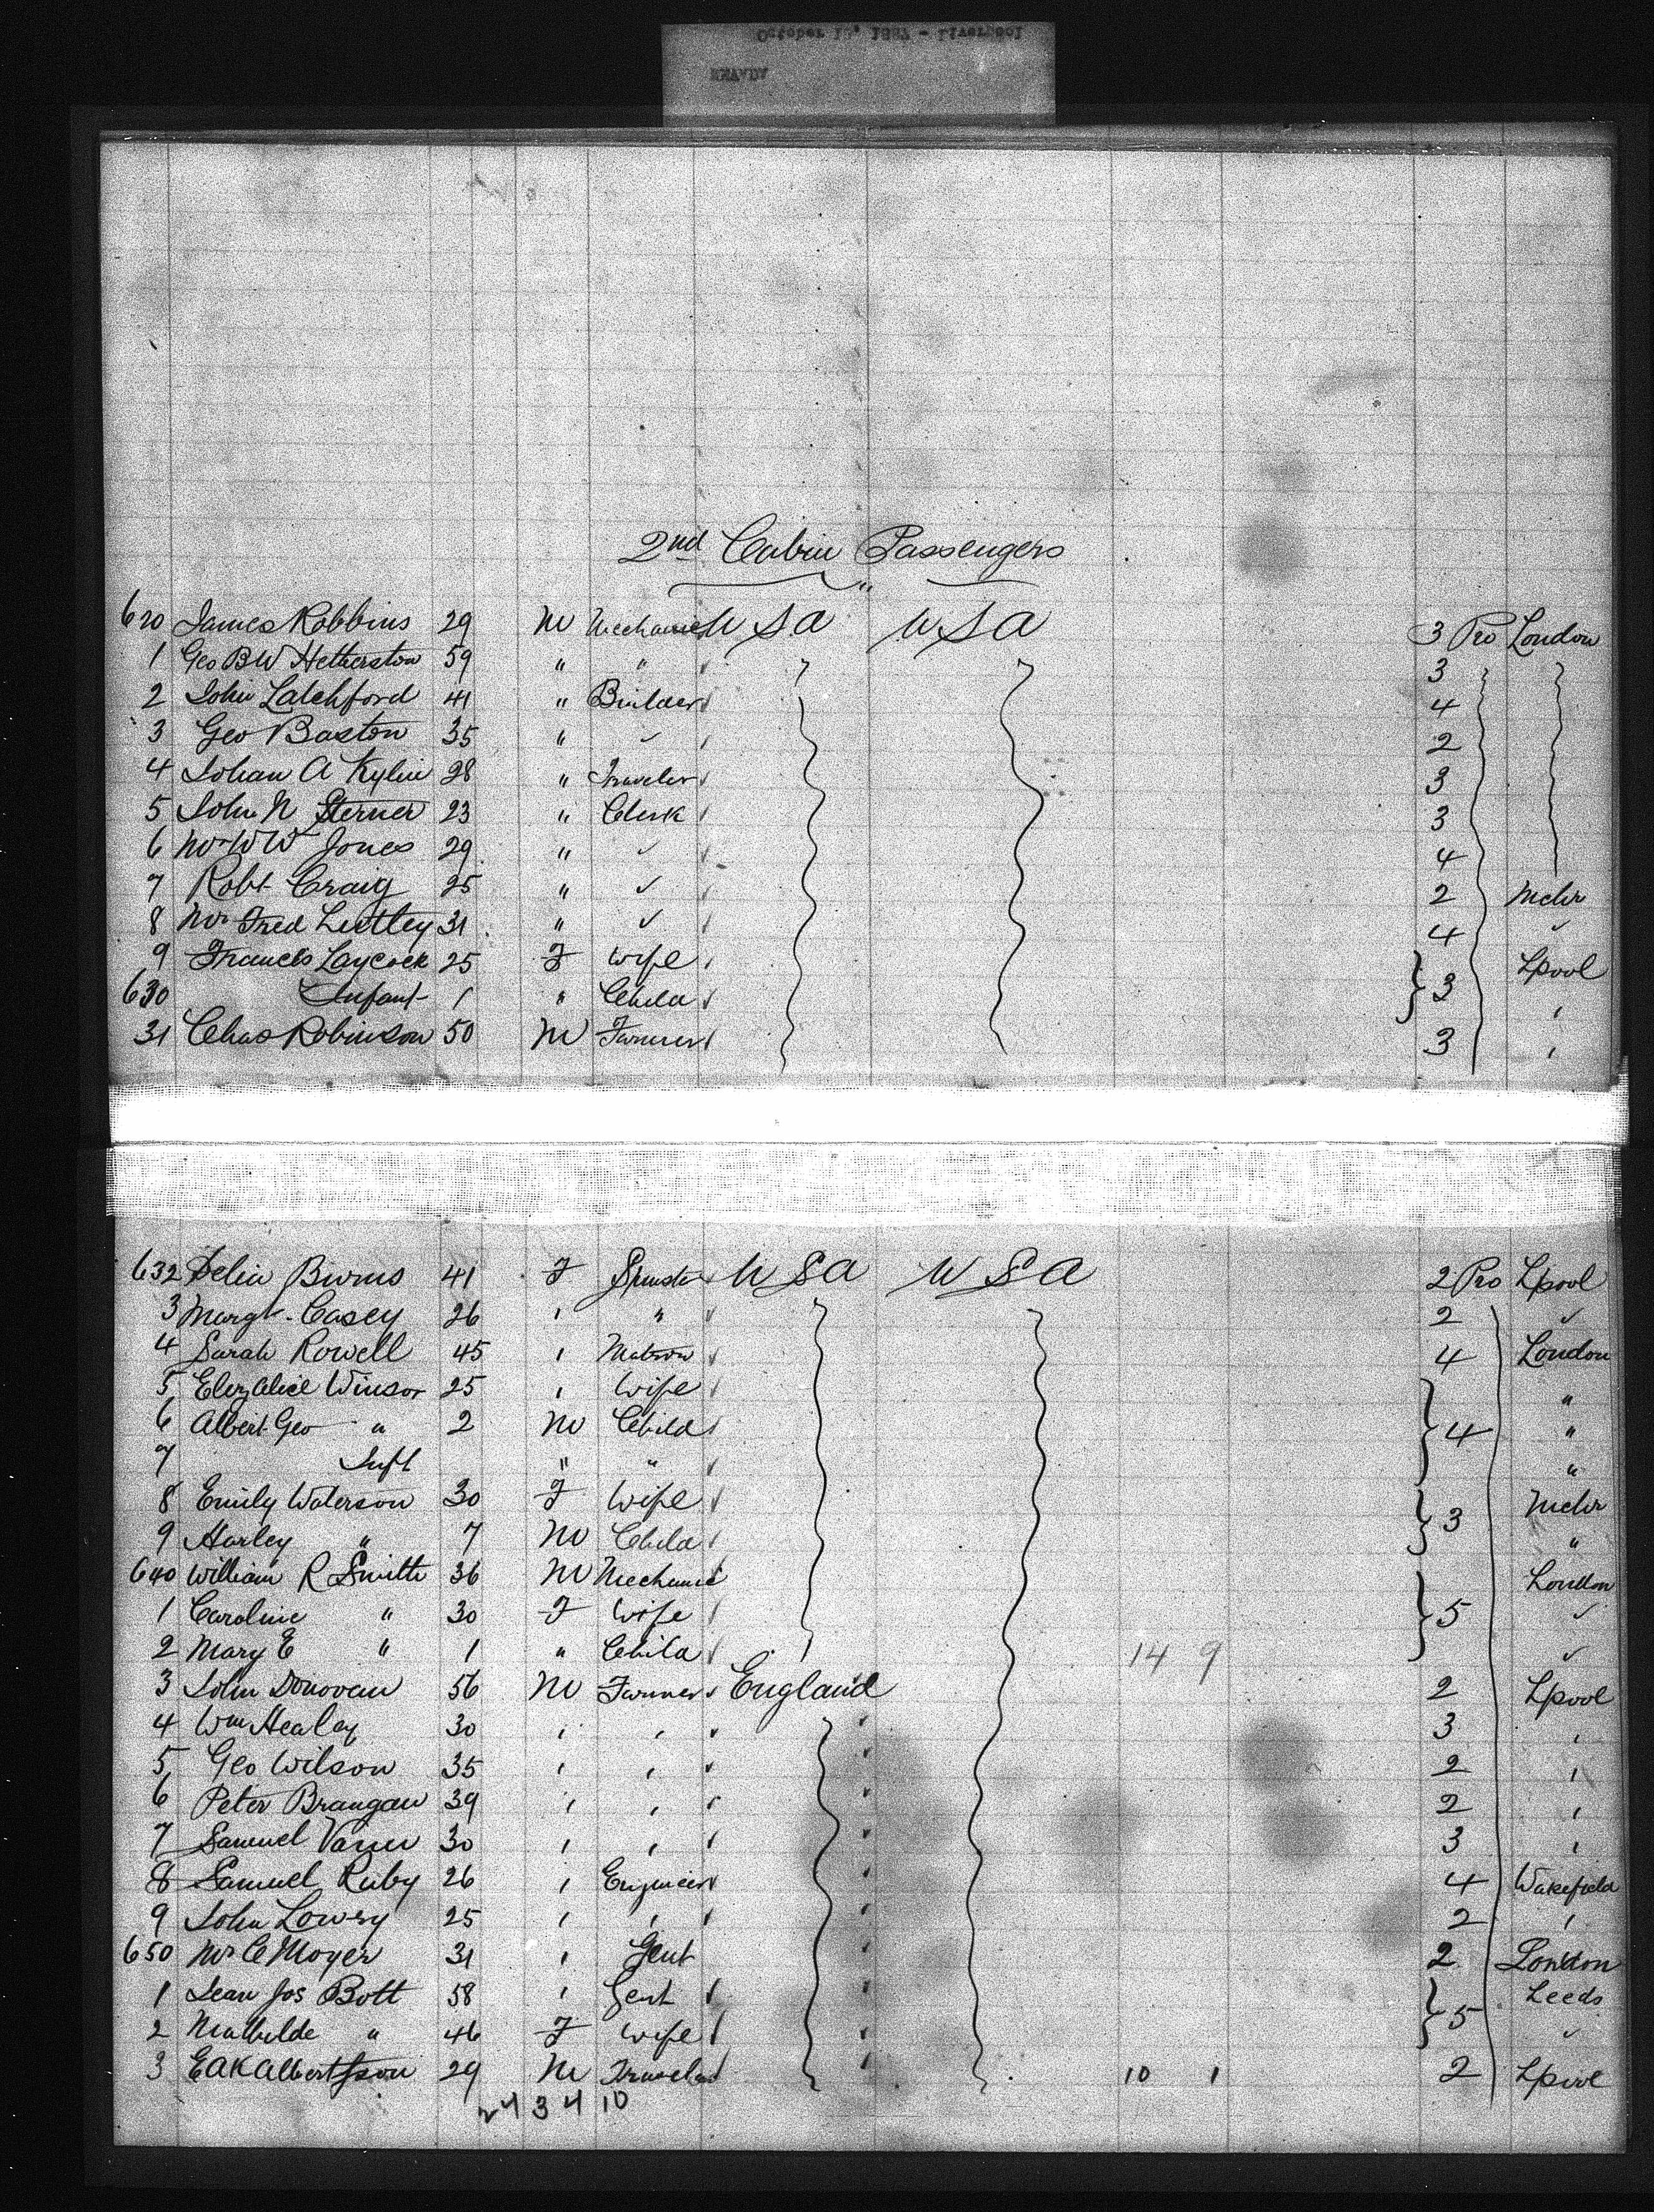 October 15, 1887 - Liverpool
NEVADA
2nd Cabin Passengers
620 James Robbins 29 M Mechanic U S A U S A 3 Pro London
1 Geo B W Hetherston 59 " " 3
2 John Latchford 41 " Builder 4
3 Geo Baston 35 " 2
4 Johan A Kylin 28 " Traveler 3
5 John N Sterner 23 " Clerk 3
6 Mr W W Jones 29 " 4
7 Robt Craig 25 " 2 Mchr
8 Mr Fred Lustley 31 " 4
9 Francis Laycock 25 F Wife Lpool
630 Infant 1 " Child } 3
31 Chas Robinson 50 M Farmer 3
632 Delia Burns 41 F Spinster U S A U S A 2 Pro Lpool
3 Margt. Casey 26 " 2
4 Sarah Rowell 45 Matron 4 London
5 Eliz Alice Winsor 25 Wife "
6 Albert Geo " 2 M Child } 4 "
7 Inft " " "
8 Emily Waterson 30 F Wife } 3 Mchr
9 Harley " 7 M Child "
640 William R Smith 36 M Mechanic London
1 Caroline " 30 F Wife } 5
2 Mary E " 1 " Child 14 9
3 John Donovan 56 M Farmer England 2 Lpool
4 Wm Healey 30 3
5 Geo Wilson 35 2
6 Peter Brangan 39 2
7 Samuel 30 3
8 Samuel Ruby 26 Engineer 4 Wakefield
9 John Lowry 25 2
650 Mr C Moyer 31 Gent 2 London
1 Jean Jos Bott 58 Gent Leeds
2 Mathilde " 46 F Wife } 5
3 E A K Albertson 29 M Traveler 10 1 2 Lpool
24 3 4 10